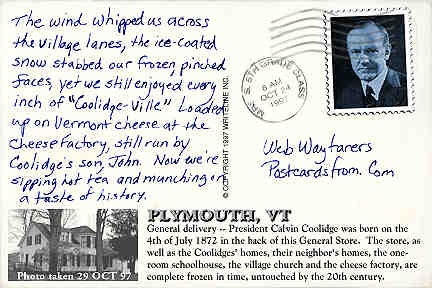 The wind whipped us across
the village lanes, the ice-coated
snow stabbed our frozen, pinched
faces, yet we still enjoyed every
inch of "Coolidge-Ville." Loaded
up on Vermont cheese at the
Cheese Factory, still run by
Coolidge's son, John. Now we're
sipping hot tea and munching on
a taste of history.
© COPYRIGHT 1997 WRITELINE INC.
MRS. S. 5TH GRADE CLASS
8 AM
OCT 24
1997
Web Wayfarers
Postcardsfrom.Com
Photo taken 29 OCT 97
PLYMOUTH, VT
General delivery -- President Calvin Coolidge was born on the
4th of July 1872 in the back of this General Store. The store, as
well as the Coolidges' homes, their neighbor's homes, the one-
room schoolhouse, the village church and the cheese factory, are
complete frozen in time, untouched by the 20th century.